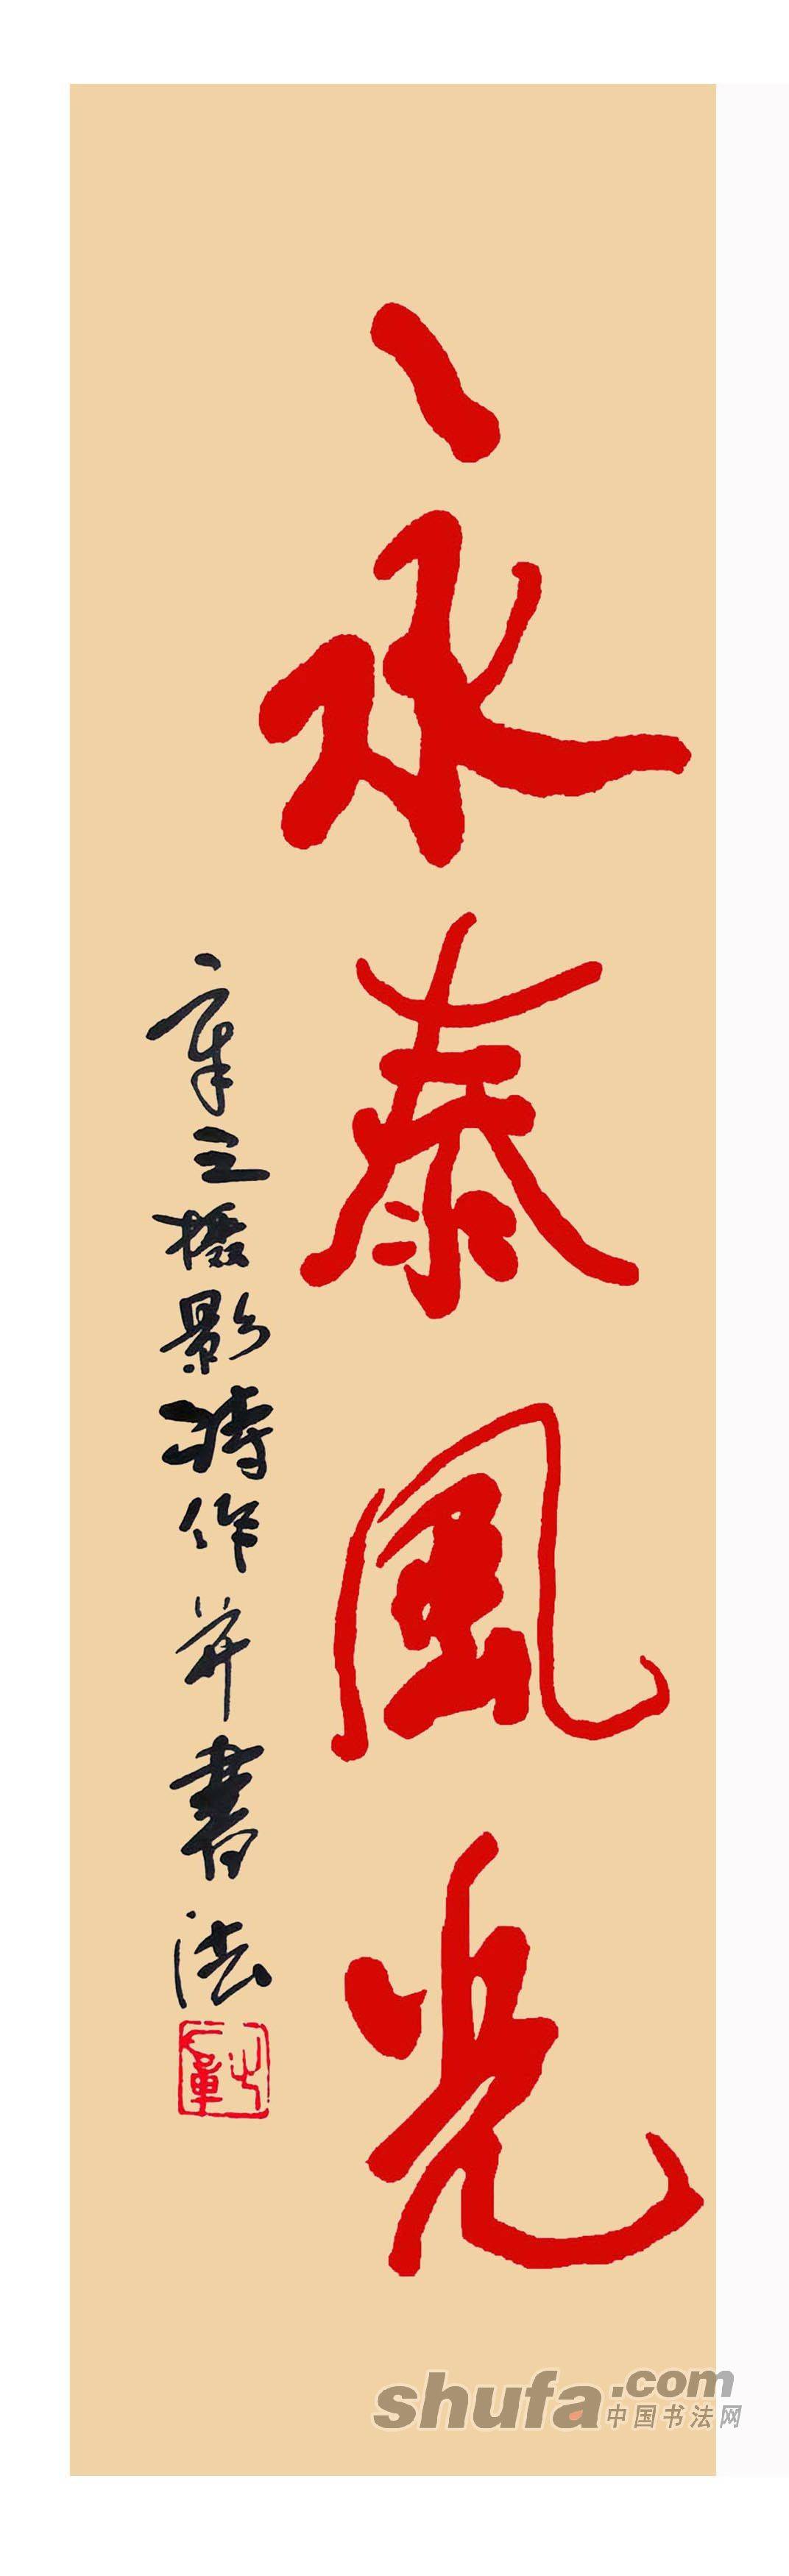 永泰風光
章之摄影诗作并書法
shufa.com
中国书法网